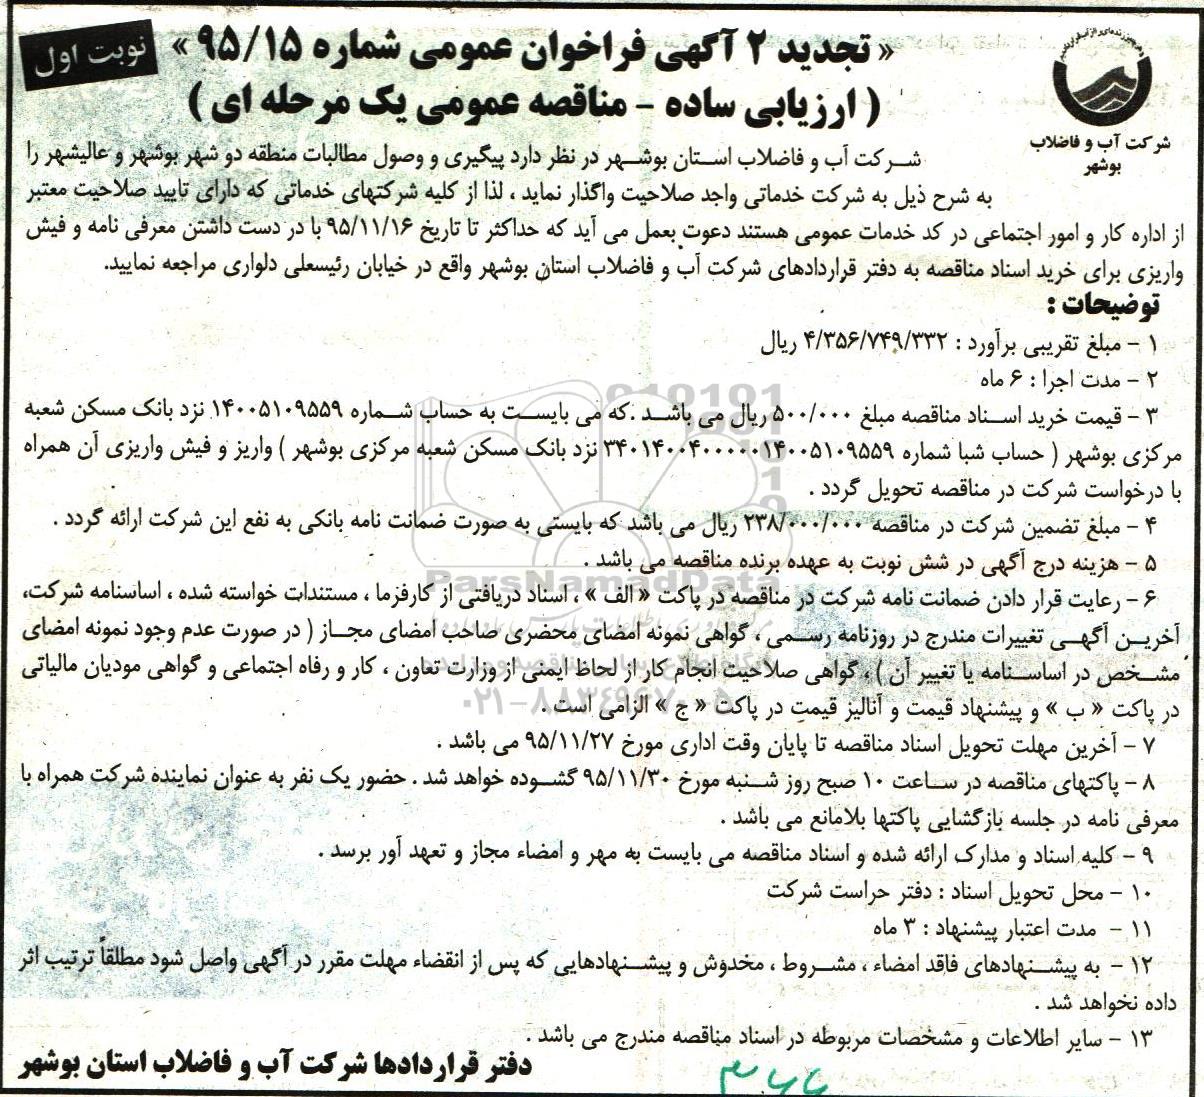 نوبت اول
« تجدید ۲ آگهی فراخوان عمومی شماره ۹۵/۱۵ »
( ارزیابی ساده - مناقصه عمومی یک مرحله ای )
شرکت آب و فاضلاب
بوشهر
شرکت آب و فاضلاب استان بوشهر در نظر دارد پیگیری و وصول مطالبات منطقه دو شهر بوشهر و عالیشهر را
به شرح ذیل به شرکت خدماتی واجد صلاحیت واگذار نماید ، لذا از کلیه شرکتهای خدماتی که دارای تایید صلاحیت معتبر
از اداره کار و امور اجتماعی در کد خدمات عمومی هستند دعوت بعمل می آید که حداکثر تا تاریخ ۹۵/۱۱/۱۶ با در دست داشتن معرفی نامه و فیش
واریزی برای خرید اسناد مناقصه به دفتر قراردادهای شرکت آب و فاضلاب استان بوشهر واقع در خیابان رئیسعلی دلواری مراجعه نمایید.
توضیحات :
۱ - مبلغ تقریبی برآورد : ۴/۳۵۶/۷۴۹/۳۳۲ ریال
۲ - مدت اجرا : ۶ ماه
۳ - قیمت خرید اسناد مناقصه مبلغ ۵۰۰/۰۰۰ ریال می باشد .که می بایست به حساب شماره ۱۴۰۰۵۱۰۹۵۵۹ نزد بانک مسکن شعبه
مرکزی بوشهر ( حساب شبا شماره ۳۴۰۱۴۰۰۴۰۰۰۰۰۱۴۰۰۵۱۰۹۵۵۹ نزد بانک مسکن شعبه مرکزی بوشهر ) واریز و فیش واریزی آن همراه
با درخواست شرکت در مناقصه تحویل گردد .
۴ - مبلغ تضمین شرکت در مناقصه ۲۳۸/۰۰۰/۰۰۰ ریال می باشد که بایستی به صورت ضمانت نامه بانکی به نفع این شرکت ارائه گردد .
۵ - هزینه درج آگهی در شش نوبت به عهده برنده مناقصه می باشد .
۶ - رعایت قرار دادن ضمانت نامه شرکت در مناقصه در پاکت « الف » ، اسناد دریافتی از کارفرما ، مستندات خواسته شده ، اساسنامه شرکت،
آخرین آگهی تغییرات مندرج در روزنامه رسمی ، گواهی نمونه امضای محضری صاحب امضای مجاز ( در صورت عدم وجود نمونه امضای
مشخص در اساسنامه یا تغییر آن ) ، گواهی صلاحیت انجام کار از لحاظ ایمنی از وزارت تعاون ، کار و رفاه اجتماعی و گواهی مودیان مالیاتی
در پاکت « ب » و پیشنهاد قیمت و آنالیز قیمت در پاکت « ج » الزامی است .
۷ - آخرین مهلت تحویل اسناد مناقصه تا پایان وقت اداری مورخ ۹۵/۱۱/۲۷ می باشد .
۸ - پاکتهای مناقصه در ساعت ۱۰ صبح روز شنبه مورخ ۹۵/۱۱/۳۰ گشوده خواهد شد . حضور یک نفر به عنوان نماینده شرکت همراه با
معرفی نامه در جلسه بازگشایی پاکتها بلامانع می باشد .
۹ - کلیه اسناد و مدارک ارائه شده و اسناد مناقصه می بایست به مهر و امضاء مجاز و تعهد آور برسد .
۱۰ - محل تحویل اسناد : دفتر حراست شرکت
۱۱ - مدت اعتبار پیشنهاد : ۳ ماه
۱۲ - به پیشنهادهای فاقد امضاء ، مشروط ، مخدوش و پیشنهادهایی که پس از انقضاء مهلت مقرر در آگهی واصل شود مطلقاً ترتیب اثر
داده نخواهد شد .
۱۳ - سایر اطلاعات و مشخصات مربوطه در اسناد مناقصه مندرج می باشد .
دفتر قراردادها شرکت آب و فاضلاب استان بوشهر
ParsNamadData
۰۲۱-۸۸۳۴۹۶۷۰-۵